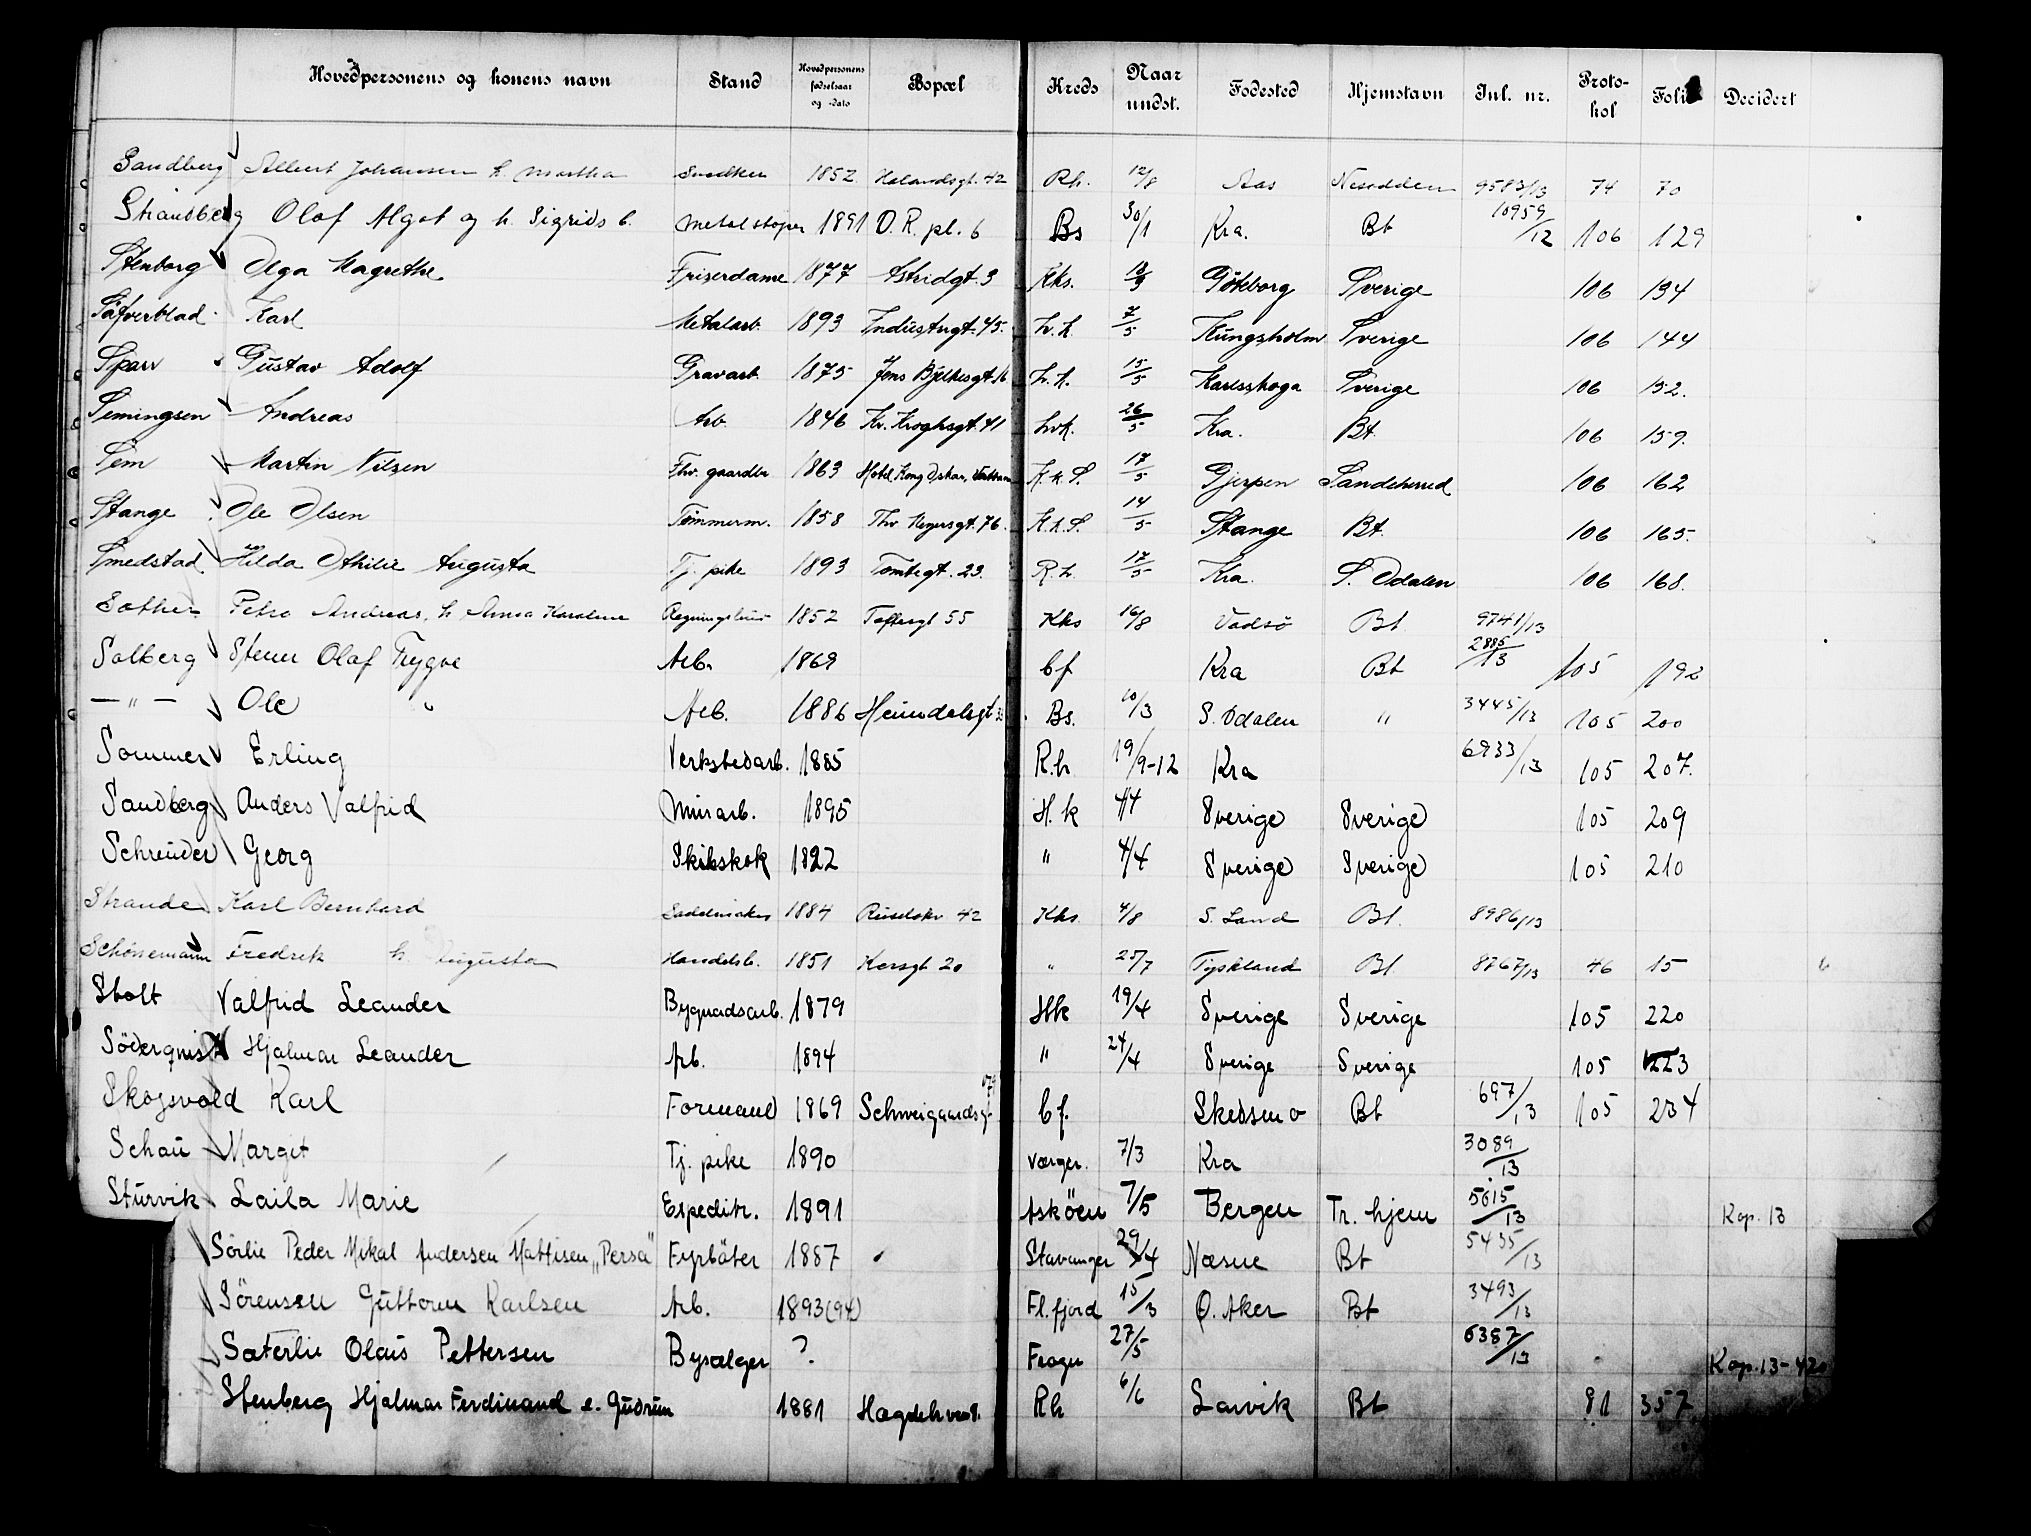 Hovedpersonens og konens navn Stand Hovedpersonens fødselsaar og -dato Bopæl Kreds Naar undst. Fødested Hjemstavn Inl. nr. Proto-kol Folio Decidert
Sandberg Albert Johansen h. Martha Snedker 1852 Holandsgt. 42 Rh. 12/8 Aas Nesodden 9583/13 74 70
Strandberg Olaf Algot og h. Sigrids b. Metalstøper 1891 O. R. pl. 6 Bs 30/1 Kra. Bt 10959/12 106 129
Stenborg Olga Magrethe Friserdame 1877 Astridgt. 3 Kks. Göteborg Sverige 106 134
Säfverblad Karl Metalarb. 1893 Industrigt. 45 h.k. 7/5 Kungsholm Sverige 106 144
Sparr Gustav Adolf Gravarb. 1875 Jens Bjelkesgt. 16 h.k. 15/5 Karlskoga Sverige 106 152.
Semingsen Andreas Arb. 1846 Kr. Kroghsgt. 41 hvk. 26/5 Kra. Bt. 106 159.
Sem Martin Nilsen Fhv. gaardbr 1863 Hotel Kong Oskar, K.k.S. 17/5 Gjerpen Sandeherred 106 162
Stange Ole Olsen Tømmerm. 1858 Thv. Meyersgt. 76. K.k.S. 14/5 Stange Bt. 106 165.
Smedstad Hilda Othilie Augusta Tj. pike 1893 Tomtegt. 23. R.h. 17/5 Kra. S. Odalen 106 168.
Petro Andreas, h. Anna Karoline 1852 Toftesgt 55 Kks 16/8 Vadsö Bt 9741/13
Solberg Olaf Trygve Arb. 1869 bf Kra Bt 2885/13 105 192
— " — Ole Arb. 1886 Heimdalsgt Bs. 10/3 S. Odalen " 3445/13 105 200
Sommer Erling Verkstedarb. 1885 R.h 19/9-12 Kra 6933/13 105 207.
Sandberg Anders Valfrid Murarb. 1895 H. k 4/4 Sverige Sverige 105 209
Schreuder Georg Skibskok 1822 " 4/4 Sverige Sverige 105 210
Strande Karl Bernhard Sadelmaker 1884 Ruseløkv 42 Kks. 4/8 S. Land Bt. 8986/13
Schönemann Fredrik h. Augusta Handelsb. 1851 Korsgt 20 " 25/7 Tyskland Bt 8767/13 46 15
Stolt Valfrid Leander Bygnadsarb. 1879 Hk 19/4 Sverige Sverige 105 220
Söderqvist Hjalmar Leander Arb. 1894 " 24/4 Sverige Sverige 105 223
Skogsvold Karl Formand 1869 Schweigaardsg. bf. Skedsmo Bt 697/13 105 234
Schau Margit Tj. pike 1890 Værger. 7/3 Kra 3089/13
Sturvik Laila Marie Expeditr. 1891 Asköen 7/5 Bergen Tr. hjem 5615/13 Kop. 13
Sörlie Peder Mikal Andersen Mattisen „Persa" Fyrböter 1887 Stavanger 29/4 Næsne Bt 5435/13
Sörensen Guttorm Karlsen Arb. 1893(94) Fl.fjord 15/3 Ø. Aker Bt 3493/13
Sæterlie Olaus Pettersen Bysælger ? Frogn 27/5 6387/13 Kop. 13-420
Stenberg Hjalmar Ferdinand e. Gudrun 1881 Hægdehvs8. Rh 6/6 Larvik Bt 91 357